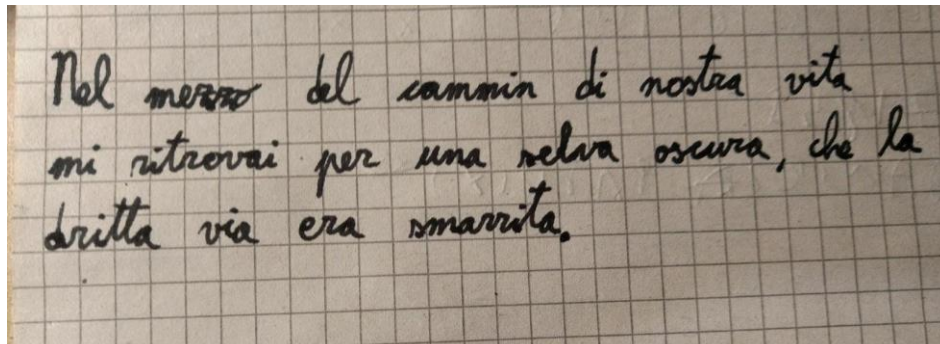 Nel mezzo del cammin di nostra vita
mi ritrovai per una selva oscura, che la
dritta via era smarrita.